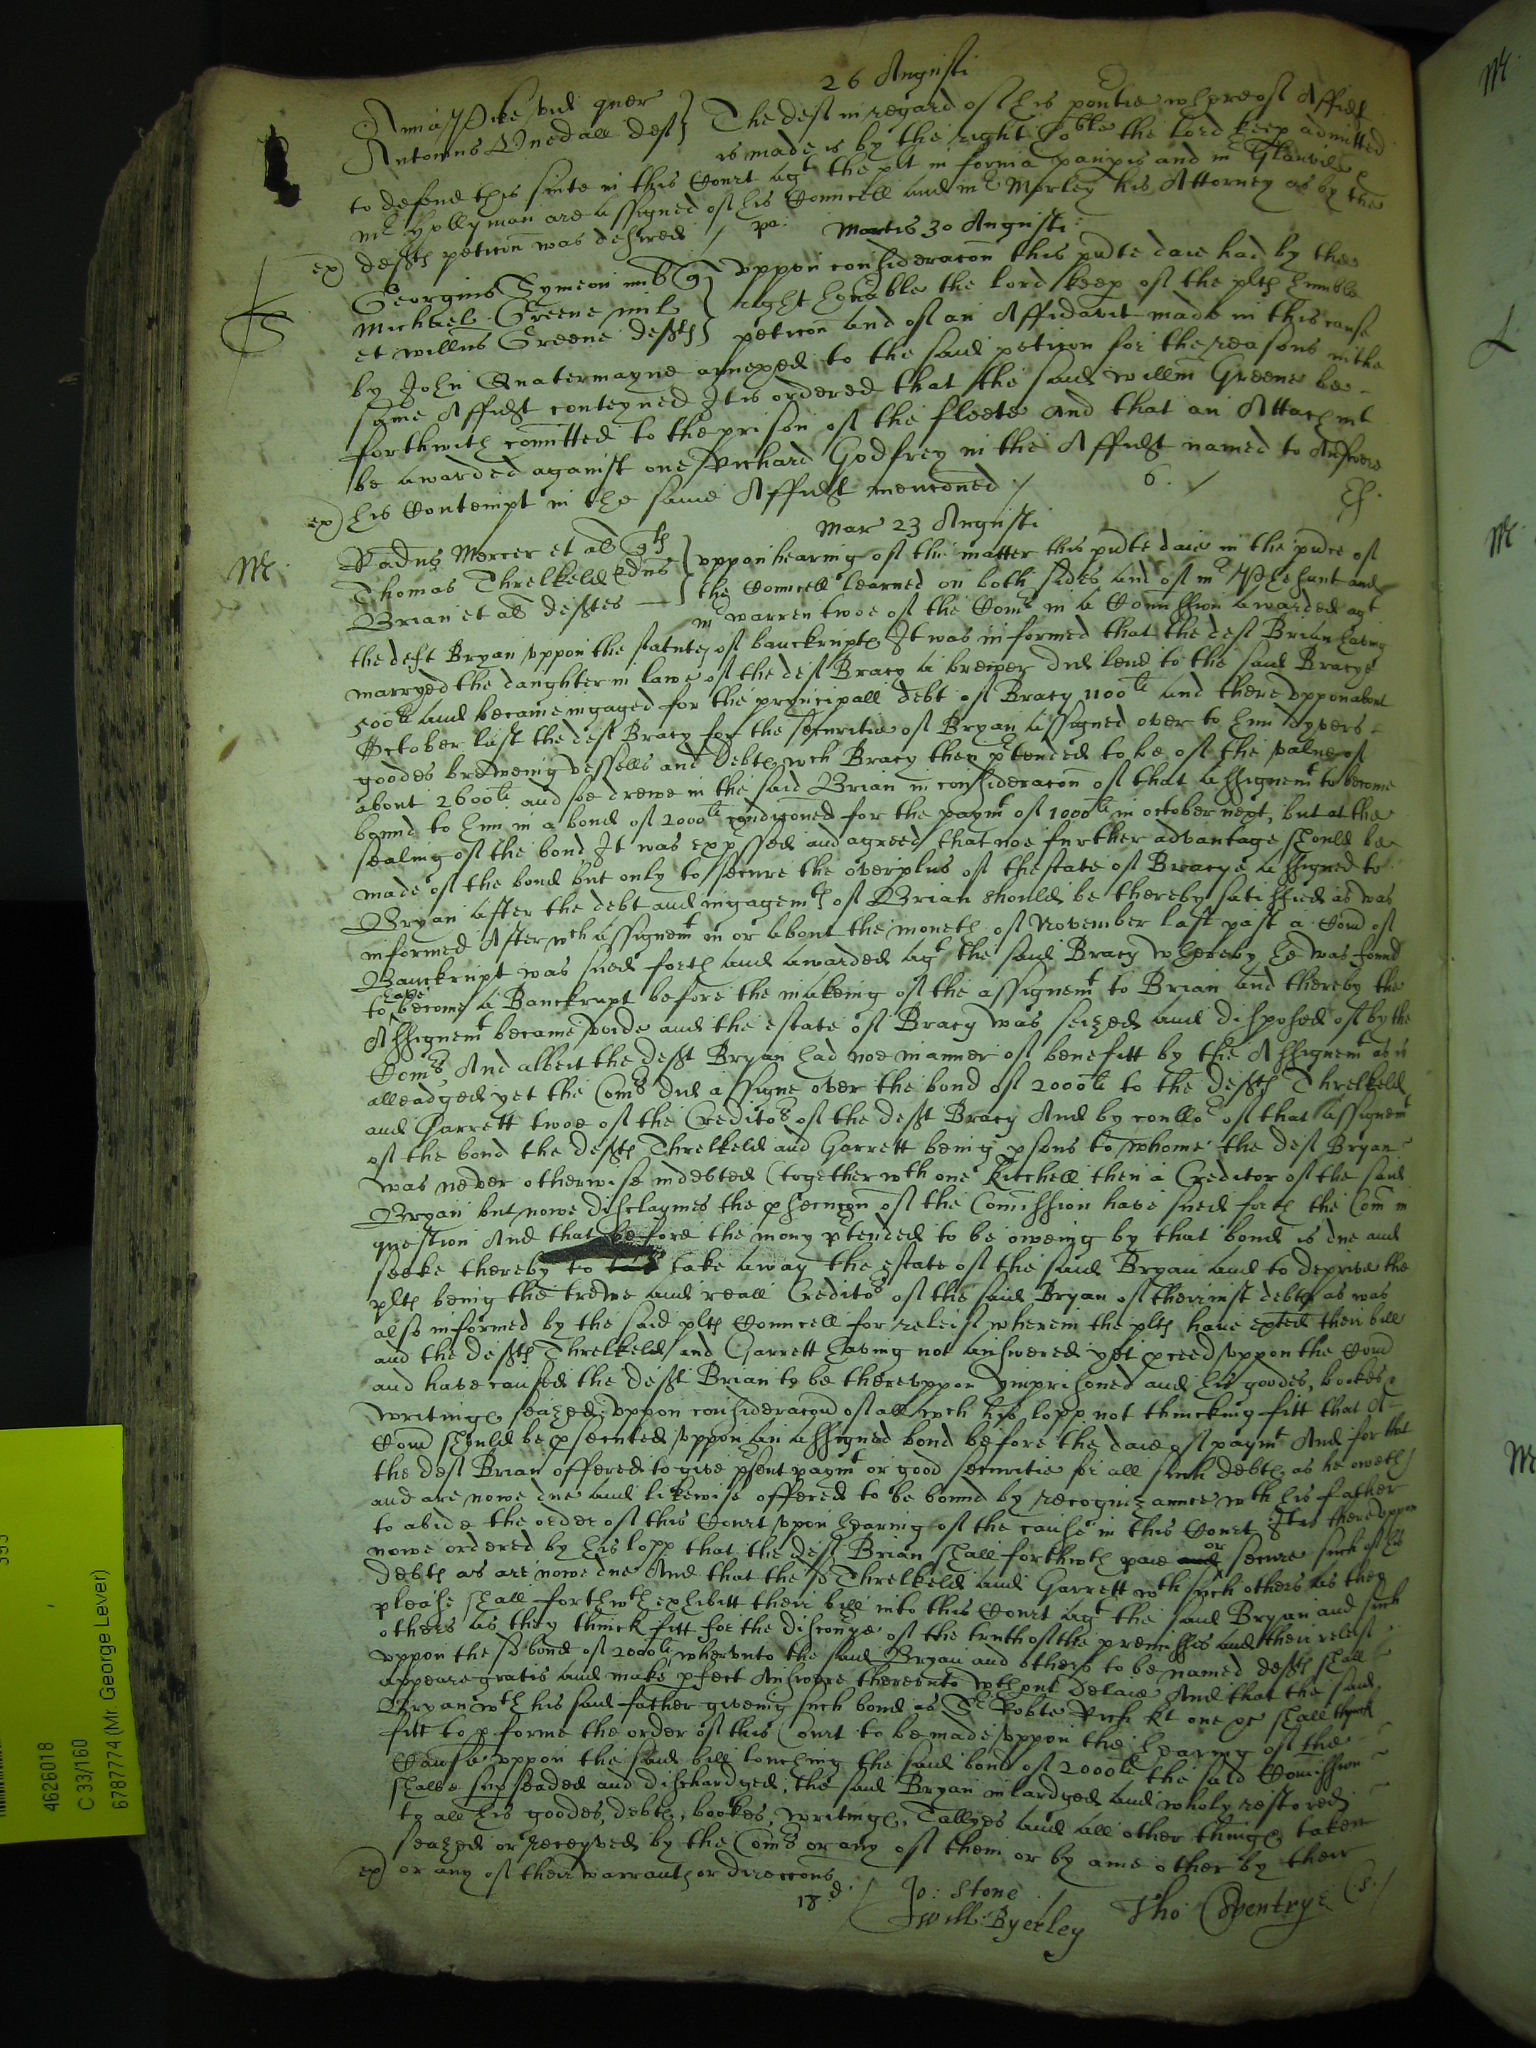 26 Augusti
Anna Pike vid quer
Antonius Vnedall deft
The deft in regard of his povertie whereof Affidt
is made is by the right hoble the lord keep admitted
to defend this suite in this Court agt the plt in forma paupis and mr Glanvile
mr Hollyman are assigned of his Councell and mr Morley his Attorney as by the
defts peticon was desired / pa.
Martis 30 Augusti
ex)
Georgius Symeon
Michael Greene mil
et willus Greene defts
vppon consideracon this pnte daie had by the
right honable the lord keep of the plts humble
peticon and of an Affidavit made in this cause
by John Quatermayne annexed to the said peticon for the reasons in the
same Affidt conteyned It is ordered that the said willm Greene be
forthwith comitted to the prison of the fleete And that an Attachmt
be awarded against one Richard Godfrey in the Affidt named to Answere
ex) his Contempt in the same Affidt menconed / 6. /
Mar 23 Augusti
Mr.
Radus Mercer et al qts
Thomas Threlkeld Edrus
Brian et al deftes
vppon hearing of the matter this pnte daie in the pnce of
the Councell learned on both sides and of mr Phesant and
mr warren twoe of the Comrs in a Comission awarded agt
the deft Bryan vppon the statutes of banckrupts It was informed that the deft Brian having
marryed the daughter in lawe of the deft Bracy a brewer did lend to the said Bracye
500li and became ingaged for the pryncipall debt of Bracy 1100li and there vppon about
October last the deft Bracy for the securitie of Bryan assigned over to him dyvers
goodes breweing vessells and debts wch Bracy then ptended to be of the value of
about 2600li and soe drewe in the said Brian in consideracon of that assignemt to become
bound to him in a bond of 2000li condiconed for the paymt of 1000li in october next, but at the
sealing of the bond It was expssed and agreed that noe further advantage should be
made of the bond but only to secure the overplus of the state of Bracye assigned to
Bryan after the debt and ingagemts of Brian should be thereby satisfied as was
informed After wch assignemt in or about the moneth of November last past a Com of
Banckrupt was sued forth and awarded agt the said Bracy whereby he was found
to have become a Banckrupt before the makeing of the assignemt to Brian and thereby the
Assignemt became voide and the estate of Bracy was seized and disposed of by the
Comrs And albeit the deft Bryan had noe manner of benefitt by the Assignemt as is
alleadged yet the Comrs did assigne over the bond of 2000li to the defts Threlkeld
and Garrett twoe of the Creditors of the deft Bracy And by collor of that assignemt
of the bond the defts Threlkeld and Garrett being psons to whome the deft Bryan
was never otherwise indebted (together wth one Kitchell then a Creditor of the said
Bryan but nowe disclaymes the psecucon of the Comission have sued forth the Com in
question And that before the mony ptended to be oweing by that bond is due and
seeke thereby to take away the estate of the said Bryan and to deprive the
plts being the trewe and reall Creditors of the said Bryan of their iust debts as was
also informed by the said plts Councell for releif wherein the plts have exted their bill
and the defts Threlkeld and Garrett having not answered yet pceed vppon the Com
and have caused the deft Brian to be therevppon ymprisoned and his goodes, bookes
writings seazed; vppon consideracon of all wch his lopp not thincking fitt that A
Com should be psecuted vppon an assigned bond before the daie of paymt And for that
the deft Brian offered to give psent paymt or good securitie for all such debts as he oweth
and are nowe due and likewise offered to be bound by recognizannce wth his father
to abide the order of this Court vpon hearing of the cause in this Court It is therevppon
nowe ordered by his lopp that the deft Brian shall forthwth paie or secure such of his
debts as are nowe due And that the sd Threlkeld and Garrett wth such others as they
please shall forthwth exhibitt their bill into this Court agt the said Bryan and such
others as they thinck fitt for the discovye of the truth of the premisses and their releif
vppon the sd bond of 2000li wherevnto the said Bryan and others to be named defts shall
appeare gratis and make pfect Answere therevnto wthout delaie And that the said
Bryan wth his said father giveing such bond as Sr Robte Rich kt one &c shall thinck
fitt to pforme the order of this Court to be made vppon the hearing of the
Cause vppon the said bill touching the said bond of 2000li the said Comission
shalbe supseaded and dischardged, the said Bryan inlardged and wholy restored
to all his goodes, debts, bookes, writings, Tallyes and all other things taken
seazed or receyved by the Comrs or any of them or by anie other by their
ex) or any of their warrants or direccons
18 d. / Jo: Stone
Will: Byerley
Tho: Coventrye (.S.)
4626018
C 33/160
6787774 (Mr George Lever)